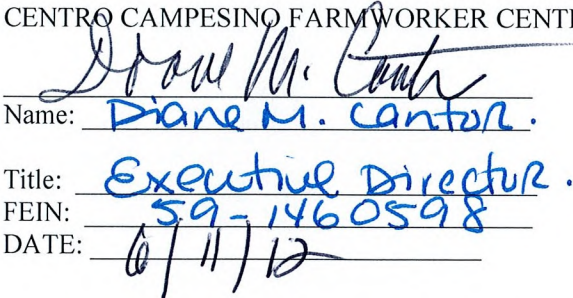 CENTRO CAMPESINO FARMWORKER CENT
Diane M. Cantor
Name: Diane M. Cantor.
Title: Executive Director.
FEIN: 59-1460598
DATE: 6/11/12